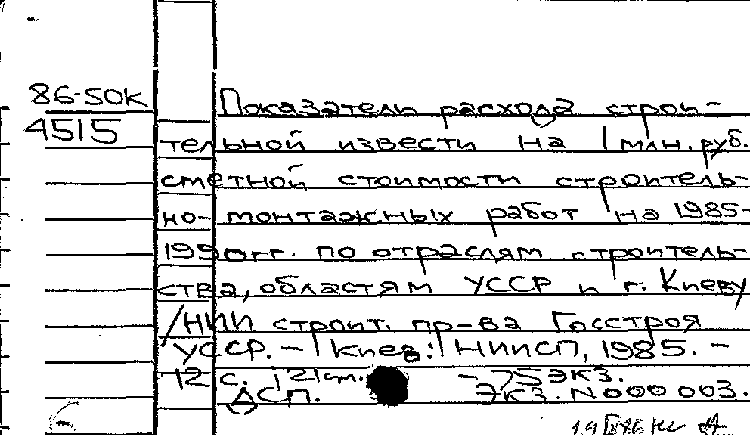 86-50К
4515
Показатели расхода строи-
тельной извести на 1 млн. руб.
сметной стоимости строитель-
но-монтажных работ на 1985-
1990гг. по отраслям строитель-
ства, областям УССР и г. Киеву
/НИИ строит. пр-ва Госстроя
УССР. - Киев: НИИСП, 1985. -
12 с. ; 21 см. - 75 экз.
ДСП. Экз. N000 003.